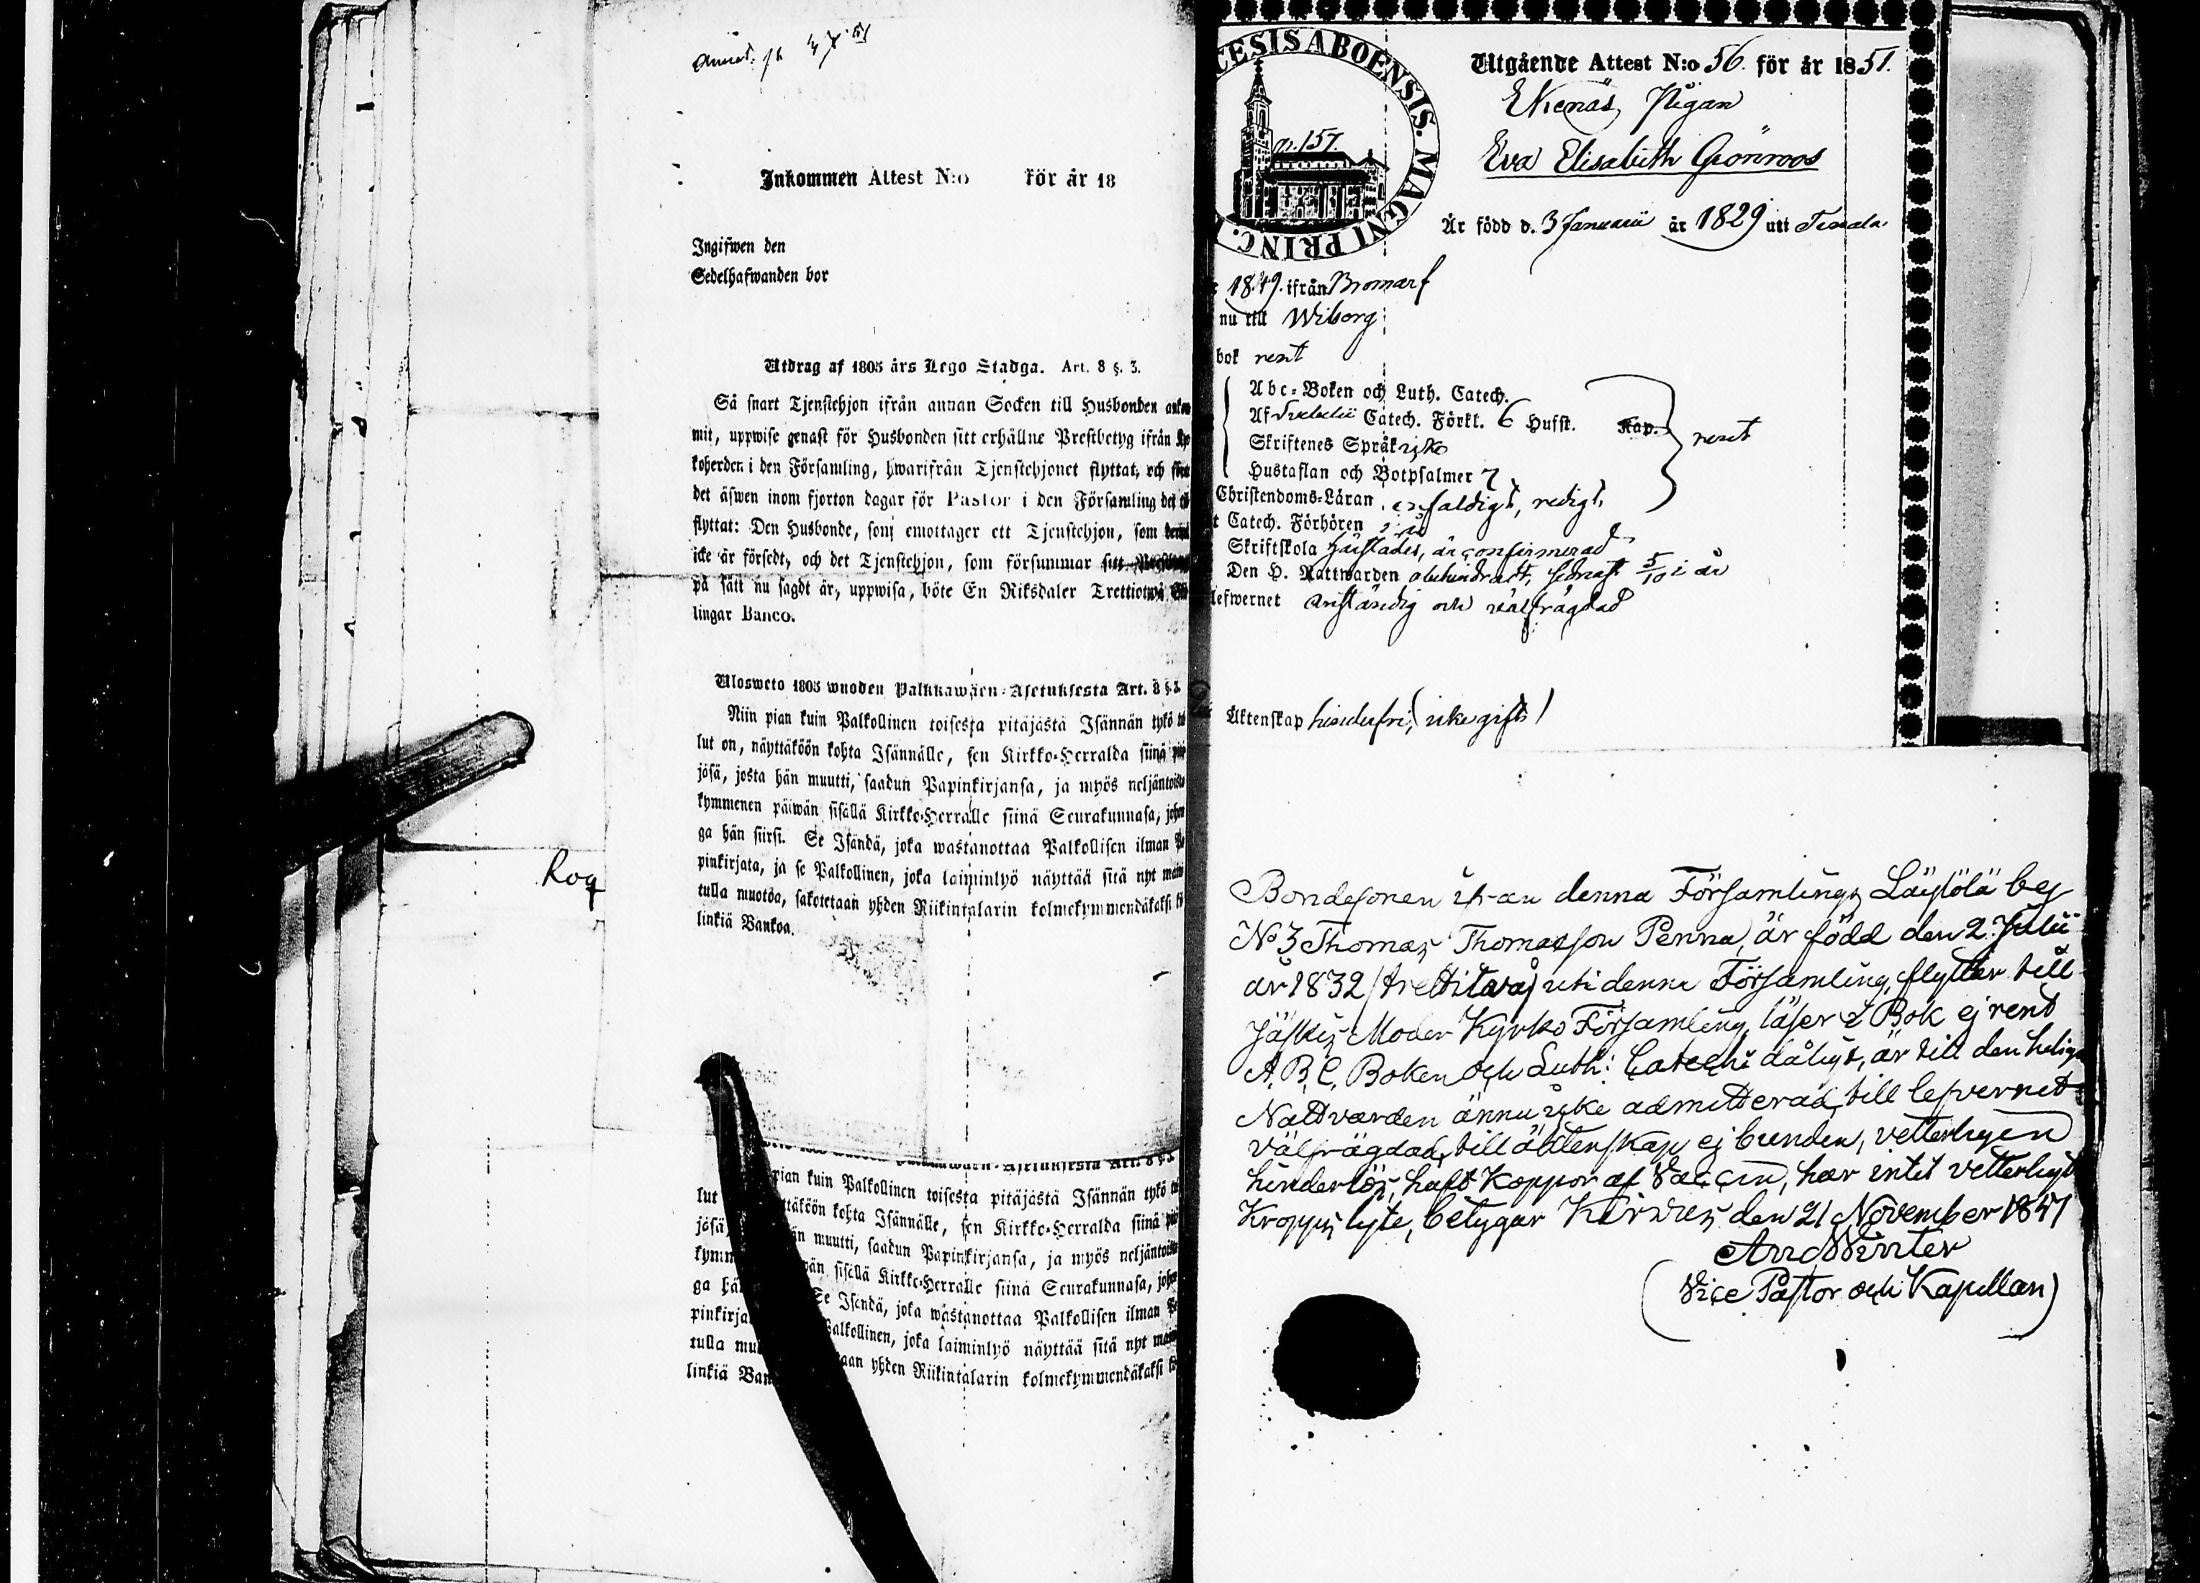 Inkommen Attest N:o för år 18
Ingifwen den
Sedelhafwanden bor
Utdrag af 1805 års Lego Stadga. Art. 8 §. 3.
Så snart Tjenstehjon ifrån annan Socken till Husbonden
mit, uppwise genast för Husbonden sitt erhållne Prestbetyg ifrån
koherden i den Församling, hwarifrån Tjenstehjonet flyttat, och
det äfwen inom fjorton dagar för Pastor i den Församling det
flyttat: Den Husbonde, som emottager ett Tjenstehjon, som
icke är försedt, och det Tjenstehjon, som försummar sitt
på sätt nu sagdt är, uppwisa, böte En Riksdaler Trettiotwå
lingar Banco.
Ulosweto 1805 wuoden Palkkawäen-Asetuksesta Art. 8 §. 3.
Niin pian kuin Palkollinen toisesta pitäjästä Isännän tykö
lut on, näyttäköön kohta Isännälle, sen Kirkko-Herralda siinä
jäsä, josta hän muutti, saadun Papinkirjansa, ja myös neljäntoista
kymmenen päiwän sisällä Kirkko-Herralle siinä Seurakunnasa,
ga hän siirsi. Se Isändä, joka wastanottaa Palkollisen ilman
pinkirjata, ja se Palkollinen, joka laiminlyö näyttää sitä nyt
tulla muotoa, sakotetaan yhden Riikintalarin kolmekymmendäkaksi
linkiä Bankoa.
Roq
pian kuin Palkollinen toisesta pitäjästä Isännän tykö
lut ttäköön kohta Isännälle, sen Kirkko-Herralda siinä
jäsä, än muutti, saadun Papinkirjansa, ja myös neljäntoista
kymm wän sisällä Kirkko-Herralle siinä Seurakunnasa,
ga hän Se Isändä, joka wastanottaa Palkollisen ilman
pinkirja Palkollinen, joka laiminlyö näyttää sitä nyt
tulla mu taan yhden Riikintalarin kolmekymmendäkaksi
linkiä Ban
CESIS ABOENSIS. MAGNI PRINC.
n. 157.
Utgående Attest N:o 56. för år 1851.
Ekenäs, Pigan
Eva Elisabeth Grönroos
Är född d. 3 Januarii år 1829 uti Tenala.
1849. ifrån Bromarf
nu till Wiborg
bok rent
Abc-Boken och Luth. Catech.
Af Svebelii Catech. Förkl. 6 Hufst. Kap. rent
Skriftenes Språk icke
Hustaflan och Botpsalmer 7
Christendoms-Läran enfaldigt, redigt.
t Catech. Förhören i år
Skriftskola härstädes, är confirmerad
Den H. Nattwarden obehindradt, sednast 5/10 i år
lefwernet anständig och välfrägdad
Äktenskap hinderfri, (icke gift)
Bondesonen ifrån denna Församlings Läystölä by
No 3 Thomas Thomasson Penna, är född den 2 Julii
år 1832 (trettitvå) uti denna Församling, flyttar till
Jäskis Moder Kyrko Församling, läser i Bok ej rent
A. B. C. Boken och Luth: Catechi dåligt, är till den helige
Nattvarden ännu icke admitterad, till lefvernet
välfrägdad, till äktenskap ej bunden, vetterligen
hinderlös, haft Koppor af Vaccin, har intet vetterligt
Kroppslyte, betygar Kirvus den 21 November 1851
And Winter
(Vice Pastor och Kapellan)